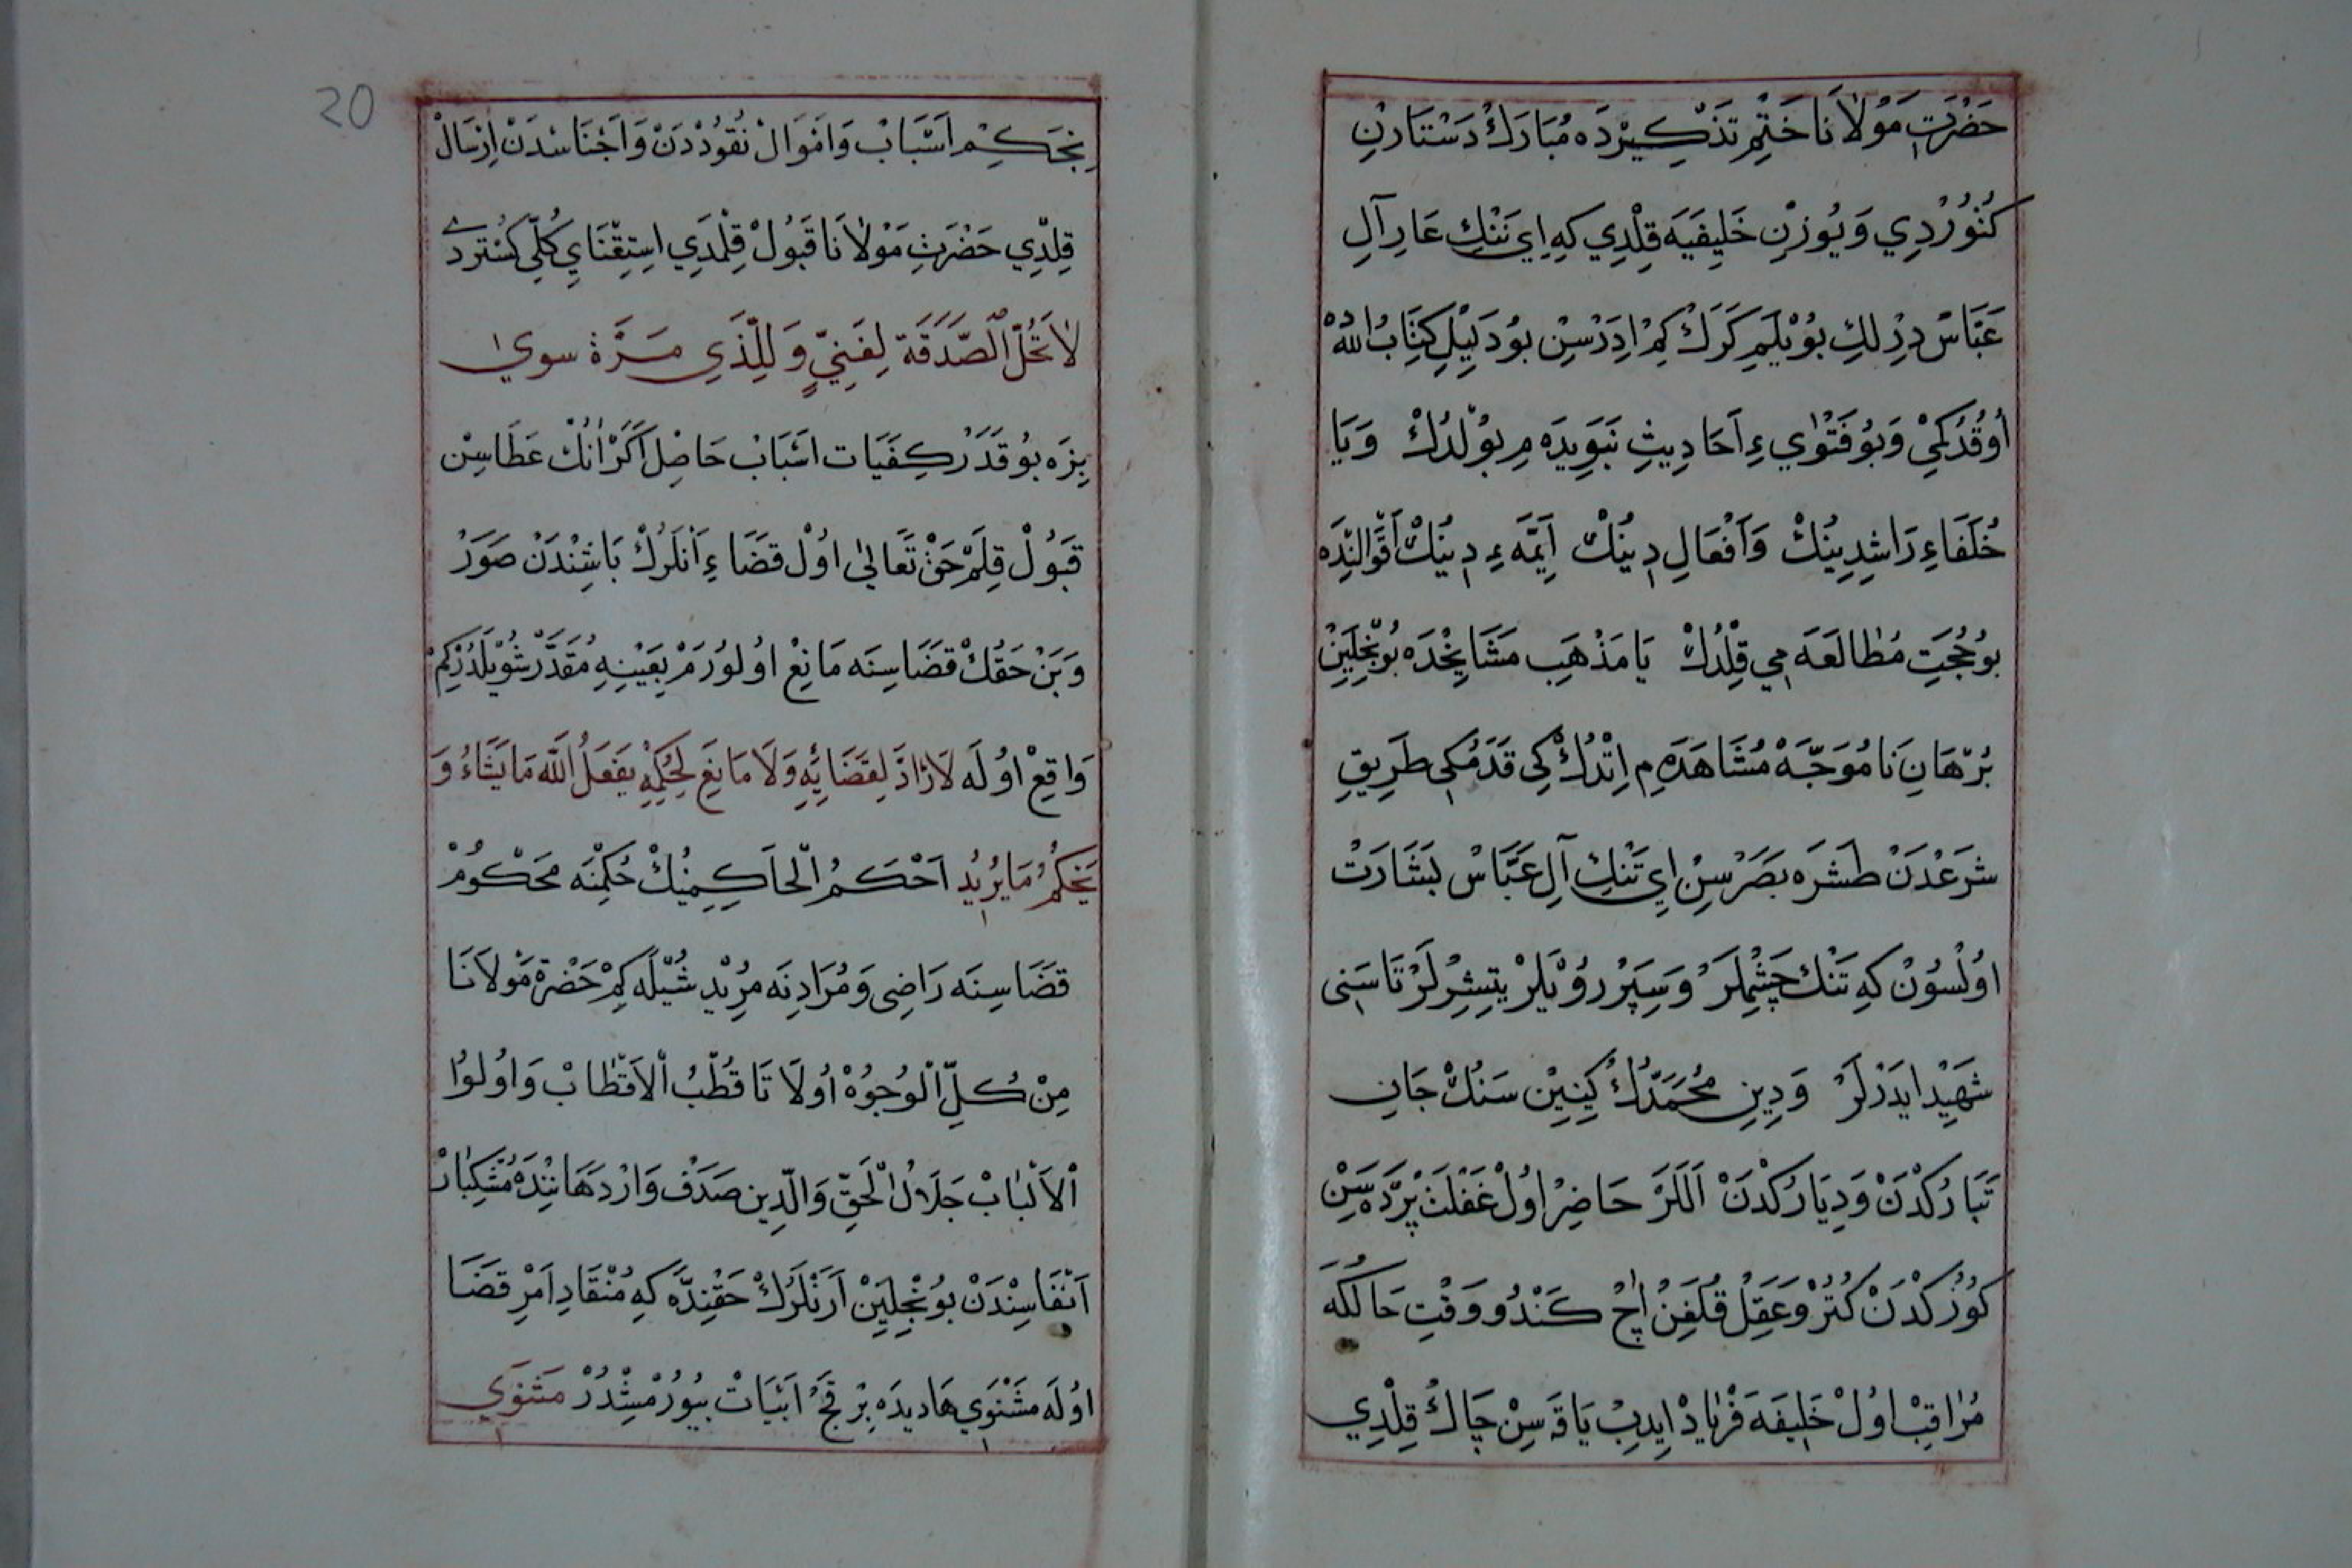 حَضْرَتِ مَوْلَانَا خَتْمِ تَذْكِيرْدَه مُبَارَكْ دَسْتَارِنِ
كُتُوُرْدِي وَيُوزِنْ خَلِيفَيَه قِلْدِي كِه اِي نَنْكِ عَارِ آلِ
عَبَّاسْ دِرْلِكِ بُوْيْلَمِ كَرَكْ كِمْ اِدَرْسِنْ بُو دَلِيلِ كِتَابُ اللّٰهْ
اُوقُدُكْمِيْ وَبُو فَتْوٰيِ اَحَادِيثِ نَبَوِيدَه مِ بُوْلْدُكْ وَيَا
خُلَفَاءِ رَاشِدِينُكْ وَاَفْعَالِ دِينُكْ اَيِمَّهءِ دِينُكْ اَقْوَالِنْدَه
بُو حُجَّتِ مُطَالَعَه مِي قِلْدُكْ يَا مَذْهَبِ مَشَايِخْدَه بُونْجِلَيِنْ
بُرْهَانِ نَا مُوَجَّهْ مُشَاهَدَه مِ اِتْدُكْ كِي قَدَمُكِي طَرِيقِ
شَرْعْدَنْ طَشْرَه بَصَرْسِنْ اِي تَنْكِ آلِ عَبَّاسْ بَشَارَتْ
اُولْسُونْ كِه تَنْكْ چَشْمِلَرْ وَسِپَرْ رُوْيَلَرْ يَتِشِرْلَرْ تَا سَنِي
شَهِيْدْ اِيدَرْلَرْ وَدِينِ مُحَمَّدُكْ كِينِيْنِ سَنُكْ جَانِ
تَبَارُكْدَنْ وَدِيَارُكْدَنْ اَلَلَرْ حَاضِرْ اُولْ غَفْلَتْ پَرْدَه سِنِ
كُوُزُكْدَنْ كُتُرْ وَعَقِلْ قُلَغِنْ اٰچْ كَنْدُو وَقْتِ حَالُكَه
مُرٰاقِبْ اُولْ خَلِيفَه فَرْيٰادْ اِيدِبْ يَاقَه سِنْ چَاكْ قِلْدِي
نِجَكِمْ اَسْبَابْ وَاَمْوَالْ نُقُودْدَنْ وَاَجْنَاسْدَنْ اِرْسَالْ
قِلْدِي حَضْرَتِ مَوْلَانَا قَبُولْ قِلْمَدِي اِسْتِغْنَايِ كُلِّي كُسْتَرْدِي
لَا تَحُلُّ الصَّدَقَة لِغَنِيٍّ وَلِلَّذِي مَرَّة سوي
بِزَه بُو قَدَرْ كِفَيَات اَسْبَابْ حَاصِلْ اَكَرْ اٰنُكْ عَطَاسِنْ
قَبُولْ قِلَمْ حَقْ تَعَالٰي اُولْ قَضَاءِ اَنْلَرُكْ بَاشِنْدَنْ صَوَرْ
وَبَنْ حَقُّكْ قَضَاسِنَه مَانِعْ اُولُورُمْ بِعَيْنِهِ مُقَدَّرْ شُوْيْلَدُرْكِمْ
وَاقِعْ اُولَه لَارَادَّ لِقَضَائِهِ وَلَا مَانِعَ لِحُكْمِهِ يَفْعَلُ اللّٰهُ مَا يَشَاءُ وَ
يَحْكُمُ مَا يُرِيدُ اَحْكَمُ الْحَاكِمِينُكْ حُكْمِنَه مَحْكُومْ
قَضَاسِنَه رَاضِي وَمُرَادِنَه مُرِيْدْ شُيْلَه كِمْ حَضْرَة مَوْلَانَا
مِنْ كُلِّ الْوُجُوُهْ اُولَا تَا قُطْبُ الْاَقْطَابْ وَاُولُوا
الْاَلْبَابْ جَلَالُ الْحَقِّ وَالدِّين صَدَفْ وَارْ دَهَانِنْدَه مُشْكِبَارْ
اَنْفَاسِنْدَنْ بُونْجِلَيِنْ اَرَنْلَرُكْ حَقِنْدَه كِه مُنْقَادِ اَمْرِ قَضَا
اُولَه مَثْنَوِي هَادِيدَه بِرْ قَچْ اَبْيَاتْ بُيُورْمِشْدُرْ مَثْنَوِي